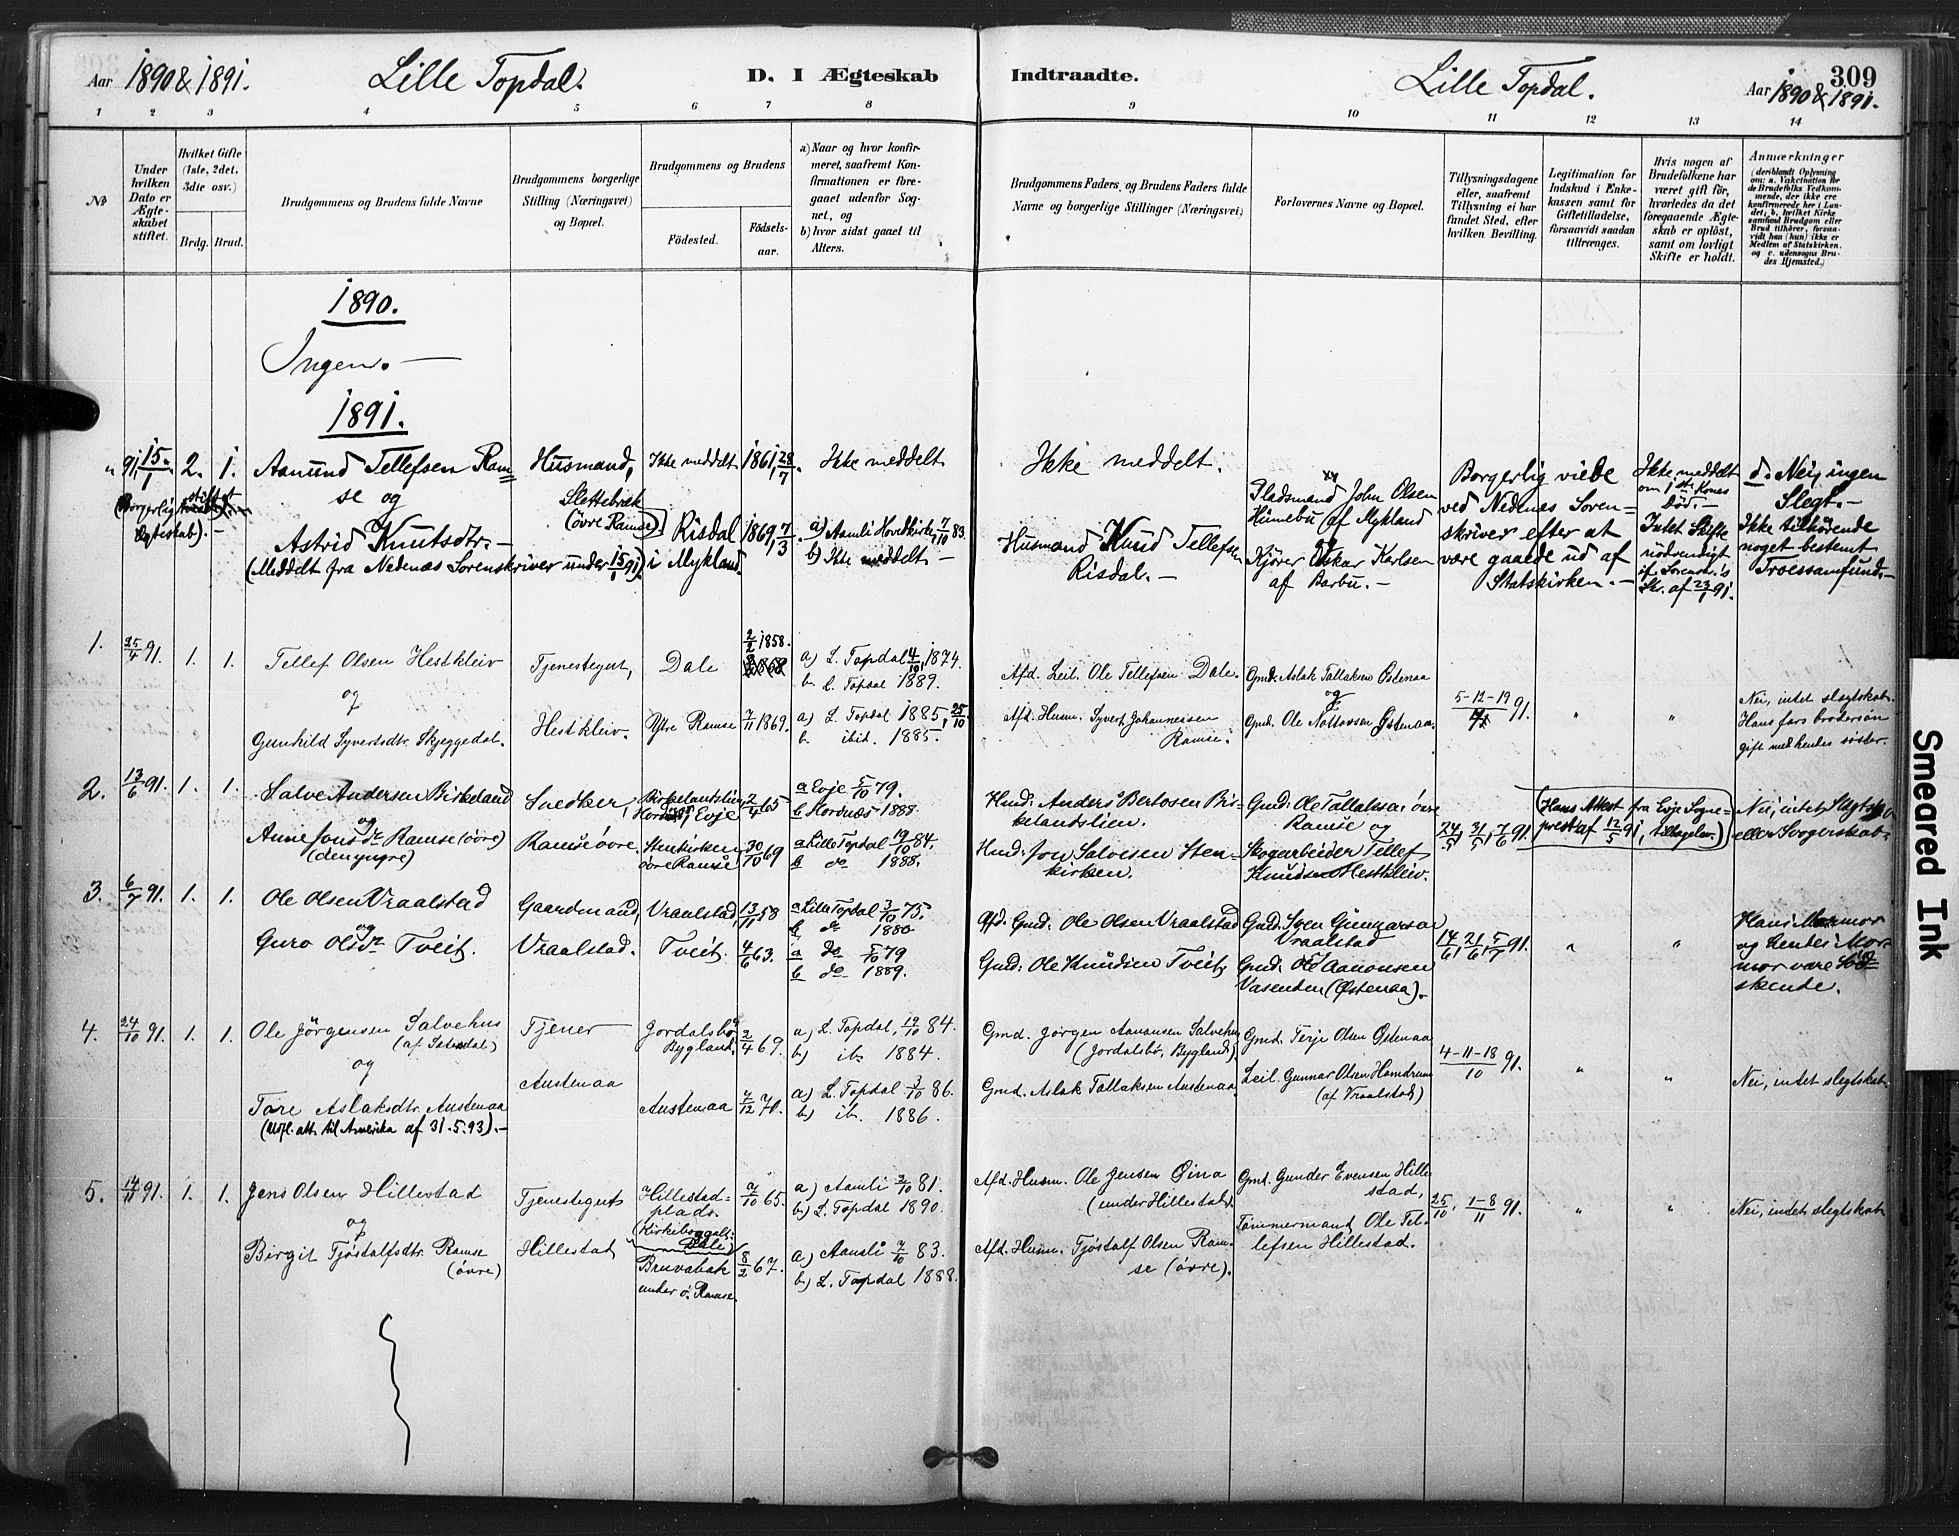 Aar 1890 & 1891. Lille Topdal. D. I Ægteskab Indtraadte. Lille Topdal. Aar 1890 & 1891. 309
1 2 3 4 5 6 7 8 9 10 11 12 13 14
№
Under hvilken Dato er Ægteskabet stiftet.
Hvilket Gifte (1ste, 2det, 3die osv.)
Brdg. Brud.
Brudgommens og Brudens fulde Navne
Brudgommens borgerlige Stilling (Næringsvei) og Bopæl.
Brudgommens og Brudens
Fødested. Fødselsaar.
a) Naar og hvor konfirmeret, saafremt Konfirmationen er foregaaet udenfor Sognet, og
b) hvor sidst gaaet til Alters.
Brudgommens Faders, og Brudens Faders fulde Navne og borgerlige Stillinger (Næringsvei)
Forlovernes Navne og Bopæl.
Tillysningsdagene eller, saafremt Tillysning ei har fundet Sted, efter hvilken Bevilling.
Legitimation for Indskud i Enkekassen samt for Giftetilladelse, forsaavidt saadan tiltrænges.
Hvis nogen af Brudefolkene har været gift før, hvorledes da det foregaaende Ægteskab er opløst, samt om lovligt Skifte er holdt.
Anmærkninger (deriblandt Oplysning om: a. Vakcination for de Brudefolks Vedkommende, der ikke ere konfirmerede her i Landet; b. hvilket Kirkesamfund Brudgom eller Brud tilhører, forsaavidt han (hun) ikke er Medlem af Statskirken, og c. udensogns Brudes Hjemsted.)
1890.
Ingen. —
1891.
" 91 15/1. 2. 1. Aanund Tellefsen Ramse og Husmand, Slettebræk (øvre Ramse) Ikke meddelt 1861, 28/7. Ikke meddelt
(Borgerlig stiftet Ægteskab). —
Astrid Knutsdtr. — Risdal i Mykland 1869, 7/3. a) Aamli Hovedkirke, 7/10 83.
b) Ikke meddelt —
(Meddelt fra Nedenæs Sorenskriver under 15/1 91)
Ikke meddelt.
Husmand Knud Tellefsen Risdal. —
Pladsmand John Olsen Himebu af Mykland
Kjører Oskar Karlsen af Barbu. —
Borgerlig viede ved Nedenæs Sorenskriver efter at være gaaede ud af Statskirken. —
Ikke meddelt om 1ste Kones Død. — Intet Skifte nødvendigt if. Sorenskr.'s Skr. af 23/1 91.
d. Nei, ingen Slegt. —
Ikke tilhørende noget bestemt Troessamfund. —
1. 25/4 91. 1. 1. Tellef Olsen Hestkleiv Tjenestegut, Dale 2/2 1858. a) L. Topdal 4/10, 1874.
b. L. Topdal 1889.
og
Gunhild Syvertsdtr. Skjeggedal. Hestkleiv. Ytre Ramse 7/11 1869. a) L. Topdal 1885, 25/10
b. ibid. 1885.
Afd. Leil. Ole Tellefsen Dale. Gmd. Aslak Tallaksen Østenaa
og
Afd. Husm. Syvert Johannessen Ramse. Gmd. Ole Nottovsen Østenaa. 5-12-19/4 91. " "
Nei, intet slegtskab. Hans fars brodersøn gift med hendes søster.
2. 13/6 91. 1. 1. Salve Andersen Birkeland Snedker, Birkelandslien, Evje 2/4 65 a Evje 5/10 79.
b Hordnæs 1888.
og
Anne Jonsdr Ramse (øvre) (den yngre) Ramse øvre. Stenkirken øvre Ramse 30/10 69 a Lille Topdal 19/10 84.
b do 1888.
Husd: Anders Bertosen Birkelandslien. Gmd: Ole Tallaksen øvre Ramse og
Husd: Jon Salvesen Stenkirken. Skogarbeider Tellef Knudsen Hestkleiv. 24/5, 31/5, 7/6 91
(Hans Attest fra Evje Sogneprest af 12/5 91, tilbagelev.)
Nei, intet Slegtskab eller Svogerskab.
3. 6/7 91. 1. 1. Ole Olsen Vraalstad Gaardmand, Vraalstad, 13/11 58 a Lille Topdal 3/10 75.
b do 1880
og
Guro Olsdr Tveit. Vraalstad. Tveit. 4/6 63. a do 5/10 79
b do 1889.
Afd. Gmd. Ole Olsen Vraalstad Gmd. Sven Gunnarsen Vraalstad
Gmd: Ole Knudsen Tveit, Gmd: Ole Aanonsen Vasenden (Østenaa). 14/6, 21/6, 5/7 91. " "
Hans Mormor og hendes Mormor vare Sødskende.
4. 24/10 91. 1. 1. Ole Jörgensen Salvehus (af Sætesdal) Tjener Jordalsbø, Bygland. 2/4 69. a) L. Topdal, 19/10 84.
b) ib. 1884.
og
Austenaa
Tore Aslaksdtr. Austenaa Austenaa 7/12 70. a) L. Topdal 3/10 86.
b) ib. 1886.
(Udfl. att. til Amerika af 31.5.93). —
Gmd. Jörgen Aanonsen Salvehus (Jordalsbø, Bygland). Gmd. Terje Olsen Østenaa
Gmd. Aslak Tallaksen Austenaa. Leil. Gunnar Olsen Homdrum (af Vraalstad) 4-11-18/10 91. " "
Nei, intet slegtskab.
5. 14/11 91. 1. 1. Jens Olsen Hillestad Tjenestegut, Hillestadplads. 7/10 65. a) Aamli 2/10 81.
b) L. Topdal 1890.
og
Birgit Tjøstolfsdtr. Ramse (øvre) Hillestad Bruvabak under ö. Ramse. 8/2 67. a) Aamli 7/10 83.
b) L. Topdal 1888.
Afd. Husm. Ole Jensen Øina (under Hillestad). Gmd. Gunder Evensen Hillestad,
Afd. Husm. Tjöstolf Olsen Ramse (øvre). Tømmermand Ole Tellefsen Hillestad. 25/10, 1-8/11 91. " "
Nei, intet slegtskab
Smeared Ink